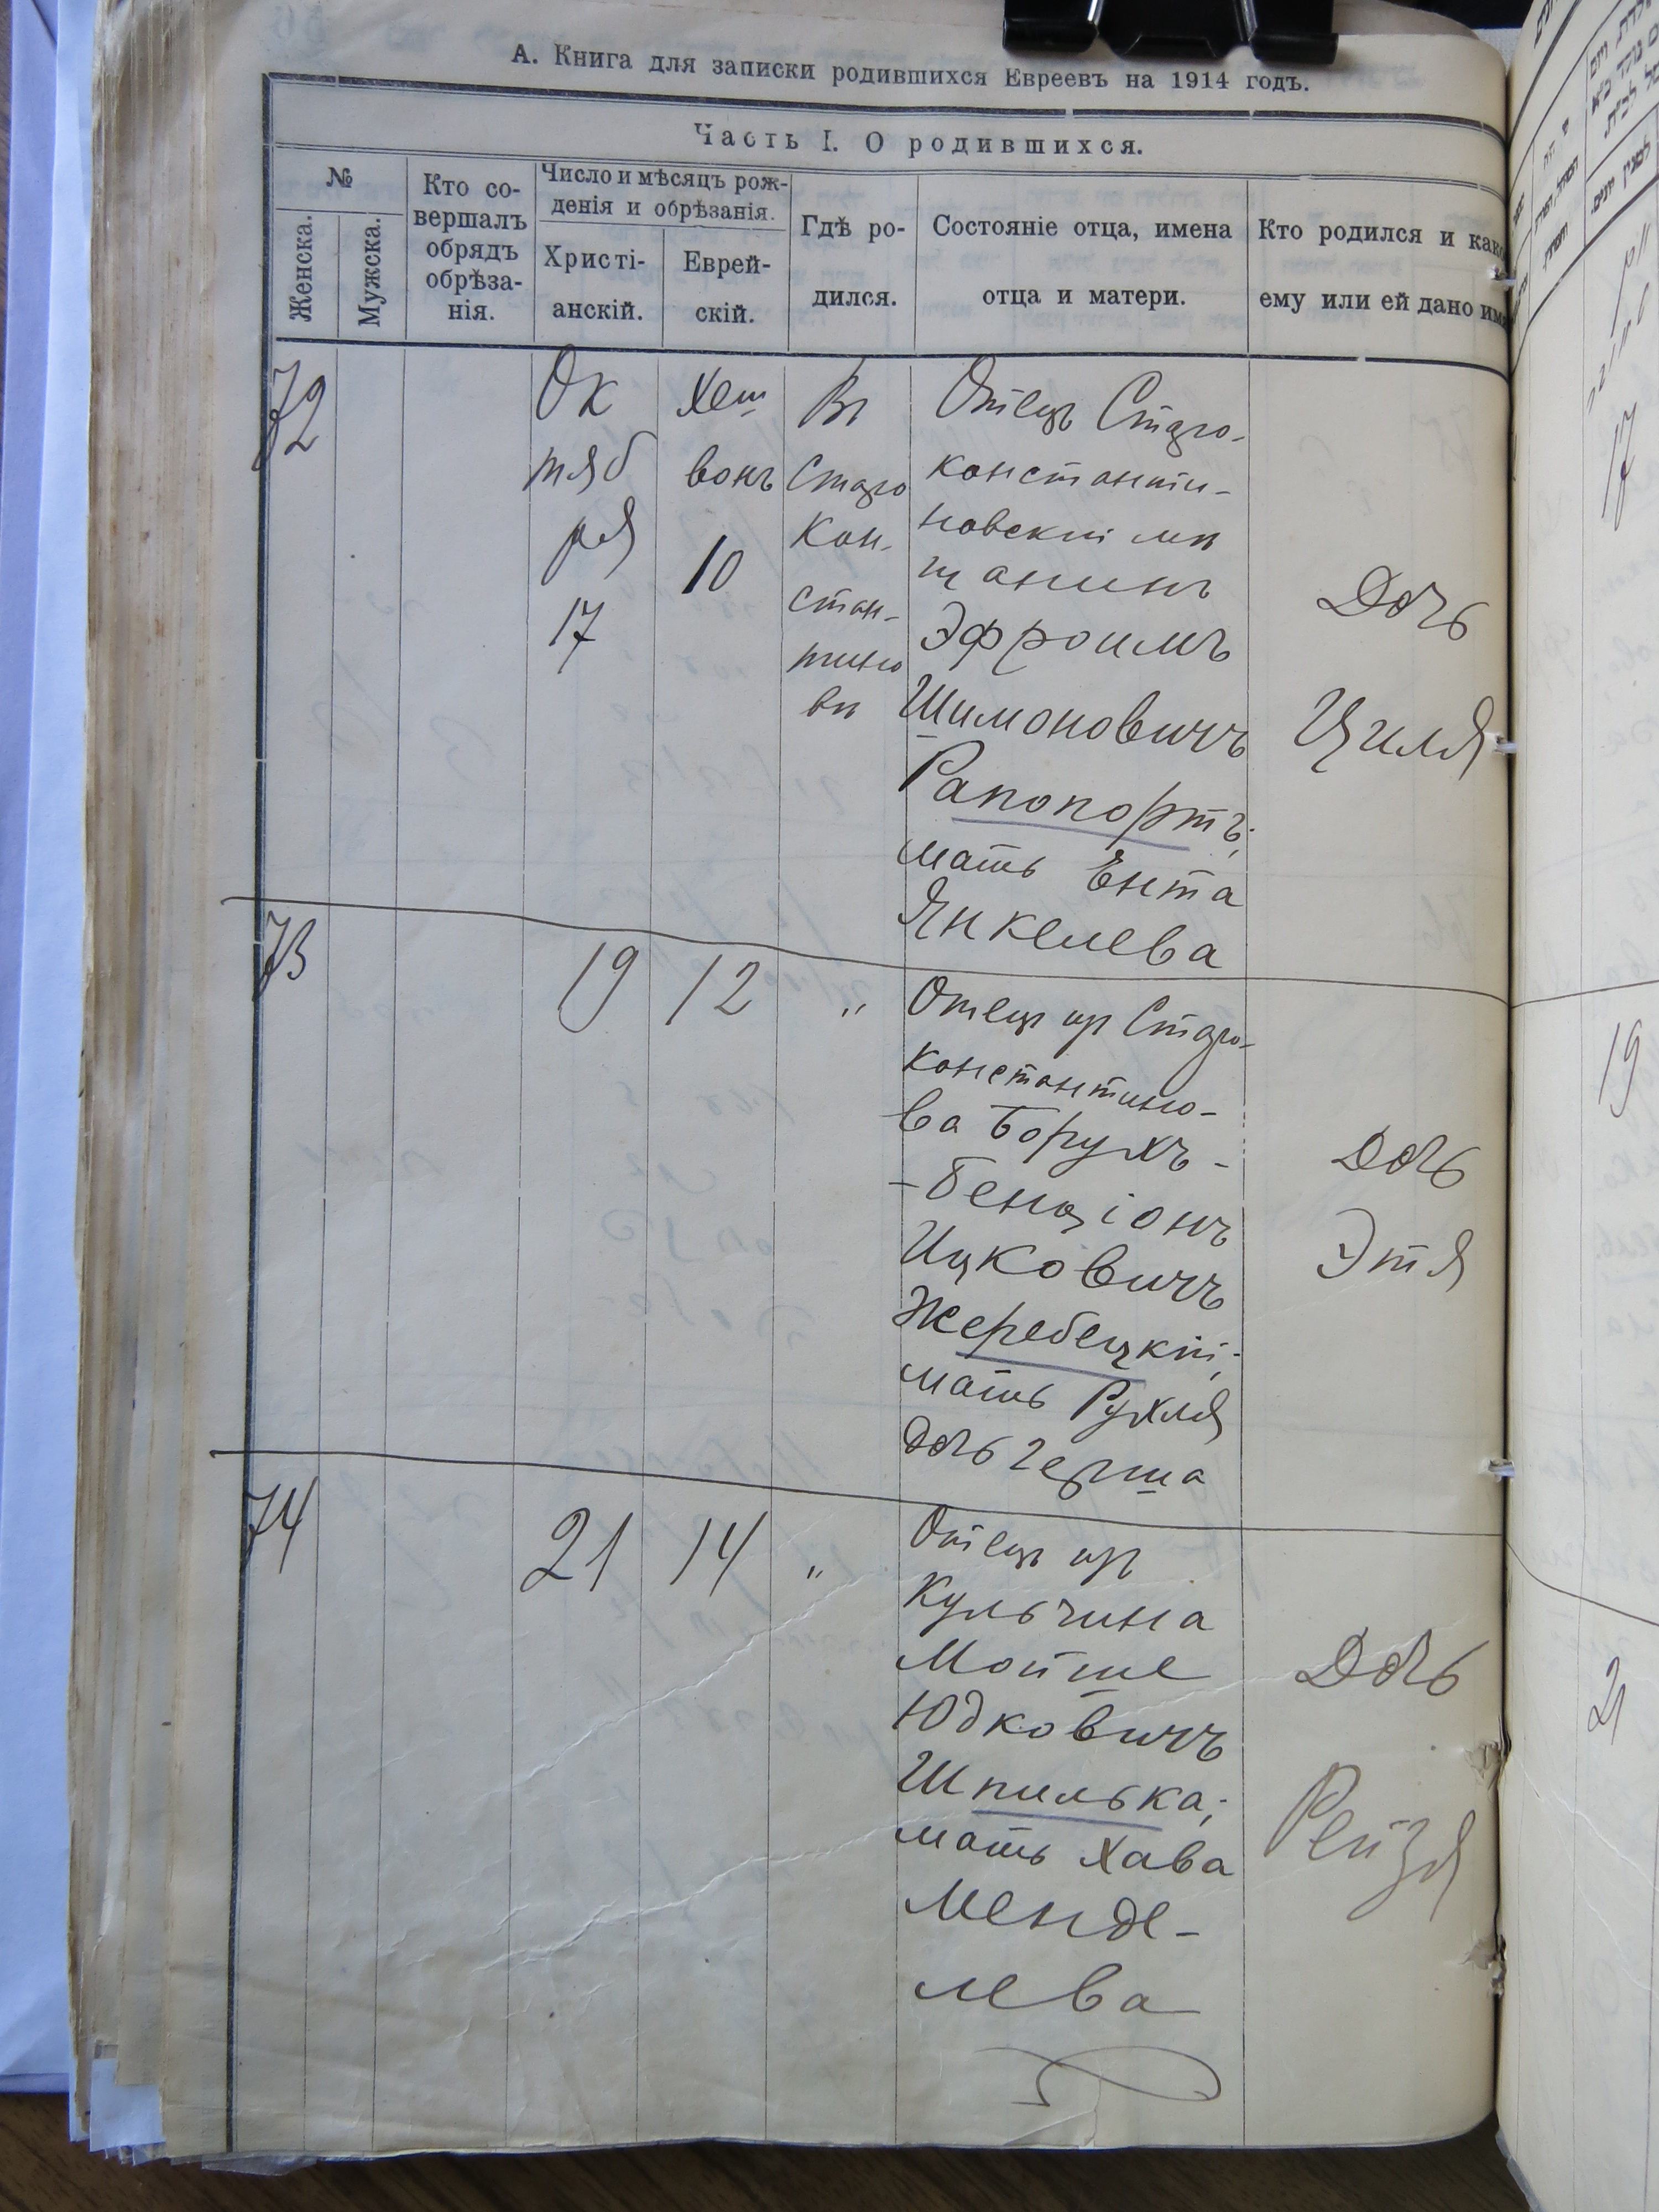 А. Книга для записки родившихся Евреевъ на 1914 годъ.
Часть I. О родившихся.
№
Женска.
Мужска.
Кто со-
вершалъ
обрядъ
обрѣза-
нія.
Число и мѣсяцъ рож-
денія и обрѣзанія.
Христі-
анскій.
Еврей-
скій.
Гдѣ ро-
дился.
Состояніе отца, имена
отца и матери.
Кто родился и како
ему или ей дано имя
72
Ок
тяб
ря
17
Хеш
вонъ
10
Въ
Старо
Кон-
стан-
тино
вѣ
Отецъ Старо-
константи-
новскій мѣ
щанинъ
Эфроимъ
Шимоновичъ
Рапопортъ;
мать Ента
Янкелева
Дочь
Циля
73
19
12
"
Отецъ изъ Старо-
константино-
ва Борухъ-
-Бенціонъ
Ицковичъ
Жеребецкій;
мать Рухля
дочь Герша
Дочь
Этя
74
21
14
"
Отецъ изъ
Кульчина
Мойше
Юдковичъ
Шпилька;
мать Хава
Менде-
лева
Дочь
Рейзя
17
19
21